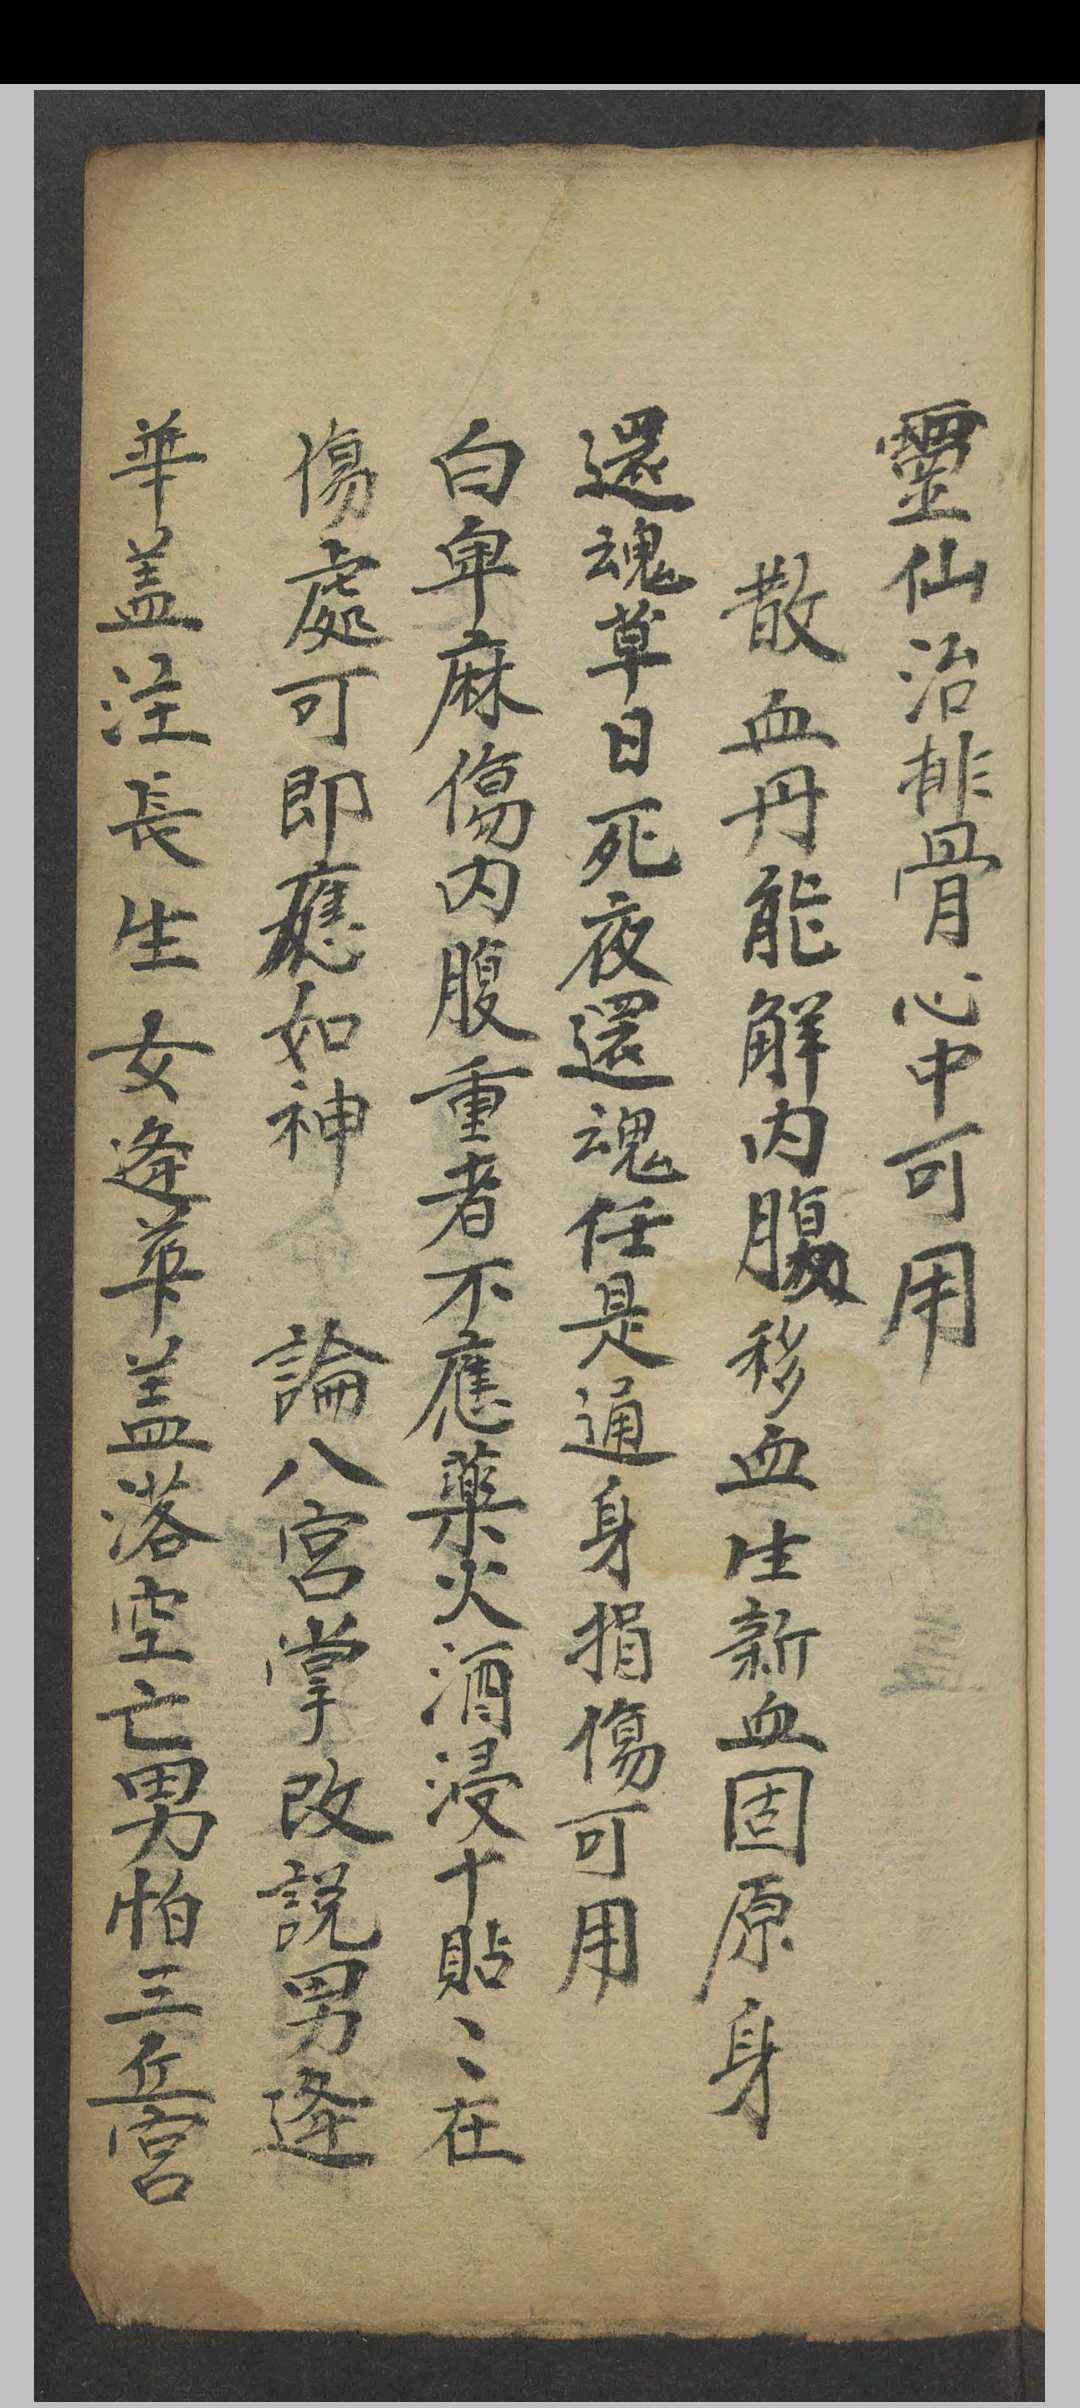 靈仙治排骨心中可用
散血丹能解内腸移血生新血固原身
還魂草日死夜還魂任是通身損傷可用
白卑麻傷内腹重者不應藥火酒浸十貼〻在
傷處可即應如神 論八宮掌改説男逢
華盖注長生女逢華盖落空亡男怕三丘宮